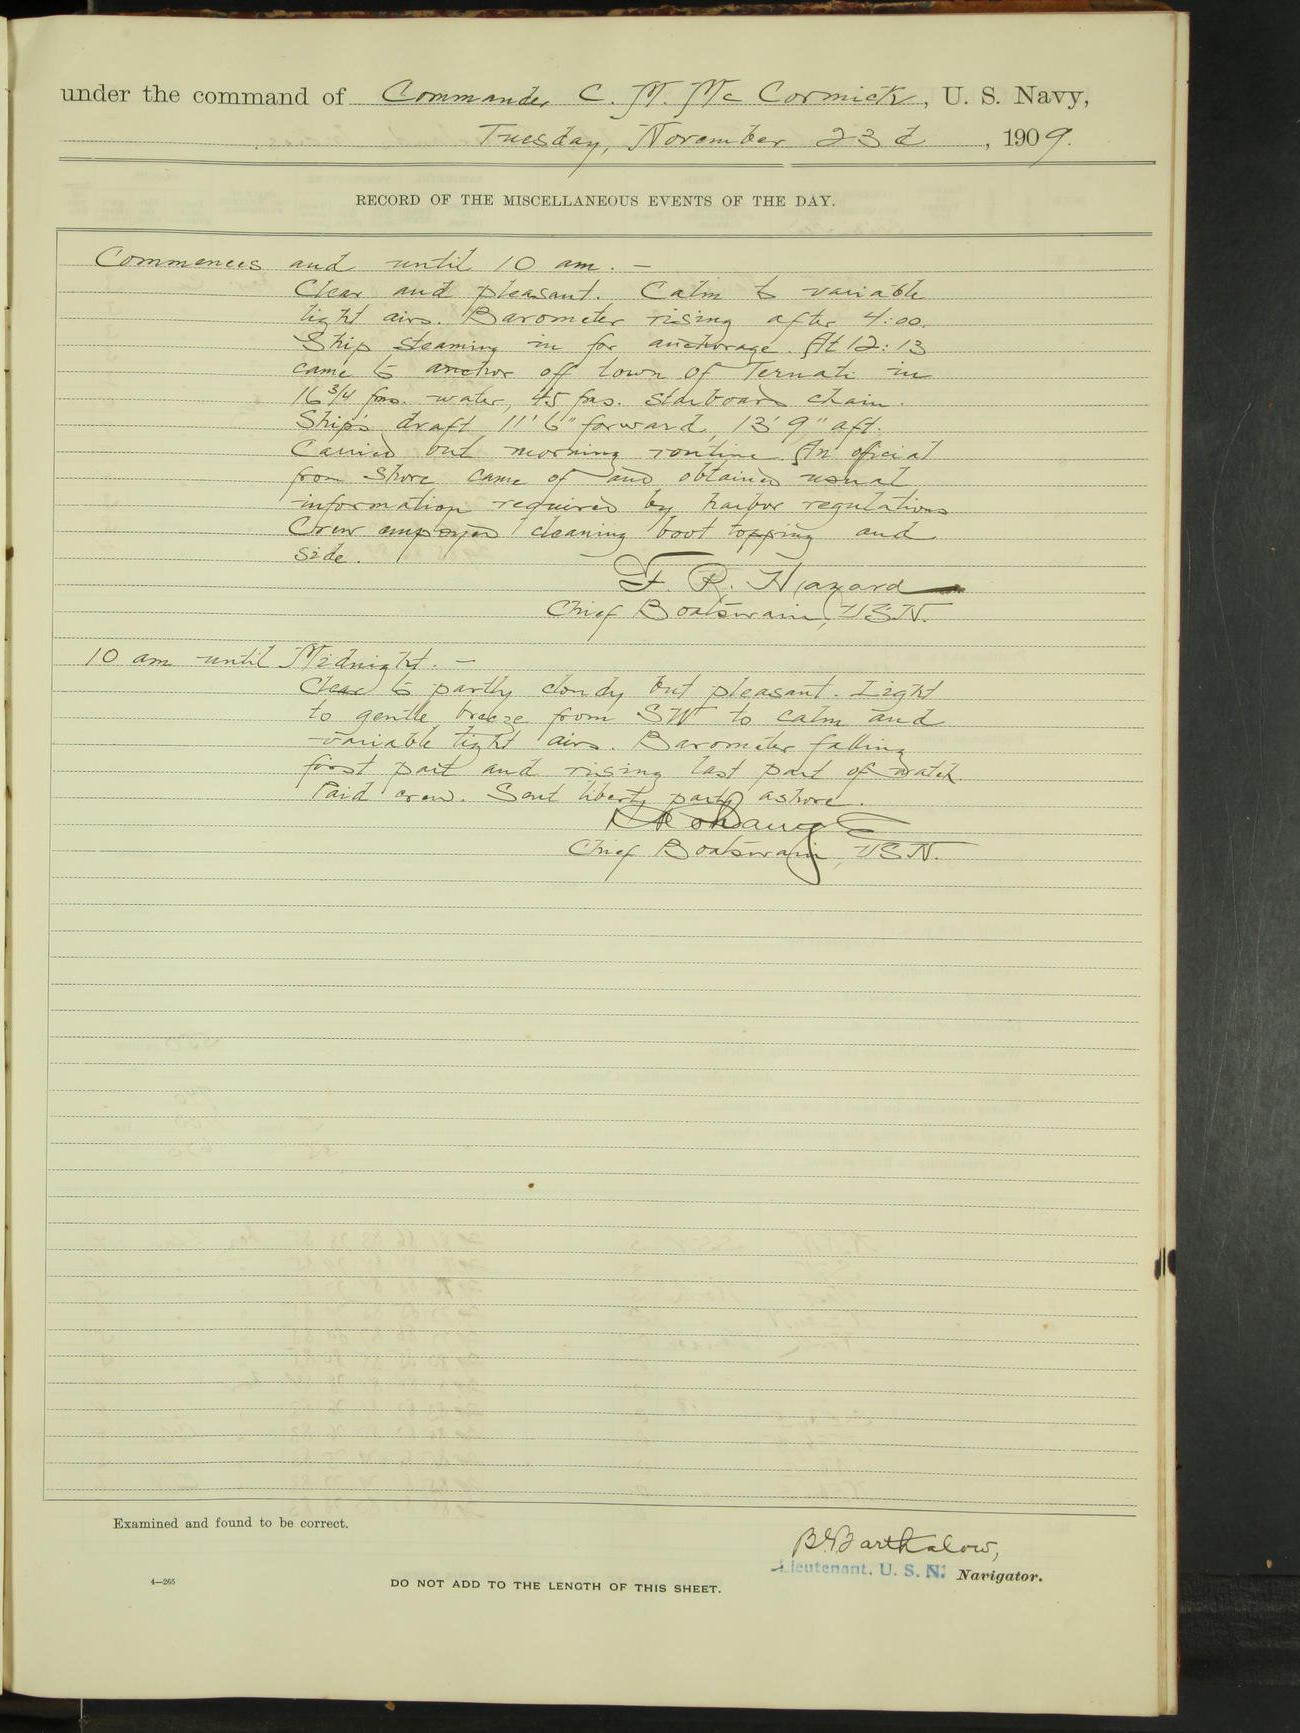 under the command of Commander C. M. McCormick, U. S. Navy,
Tuesday, November 23d, 1909.
RECORD OF THE MISCELLANEOUS EVENTS OF THE DAY.
Commences and until 10 am. —
Clear and pleasant. Calm to variable
light airs. Barometer rising after 4:00.
Ship steaming in for anchorage. At 12:13
came to anchor off town of Ternate in
16 3/4 fms. water, 45 fms. starboard chain.
Ship's draft 11' 6" forward, 13' 9" aft.
Carried out morning routine. An oficial
from shore came of and obtained usual
information required by harbor regulations
Crew employed cleaning boot topping and
side.
F. R. Hazard
Chief Boatswain, U.S.N.
10 am until Midnight. —
Clear to partly cloudy but pleasant. Light
to gentle breeze from SW to calm and
variable light airs. Barometer falling
first part and rising last part of watch
Paid crew. Sent liberty party ashore.
Chief Boatswain, U.S.N.
Examined and found to be correct.
Barthalow,
Lieutenant, U. S. N. Navigator.
4—265
DO NOT ADD TO THE LENGTH OF THIS SHEET.